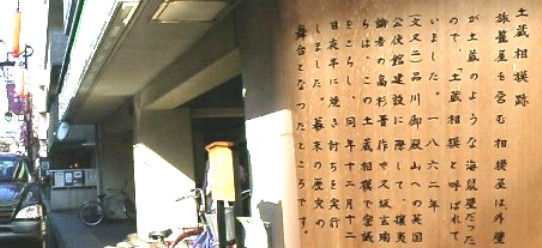 土蔵相撲跡
旅籠屋を営む相模屋は、外壁
が土蔵のような海鼠壁だった
ので、「土蔵相模」と呼ばれて
いました。一八六二年
（文久二）品川御殿山への英国
公使館建設に際して、攘夷
論者の高杉晋作や久坂玄瑞
らは、この土蔵相模で密議
をこらし、同年十二月十二
日夜半に焼き討ちを実行
しました。幕末の歴史の
舞台となったところです。